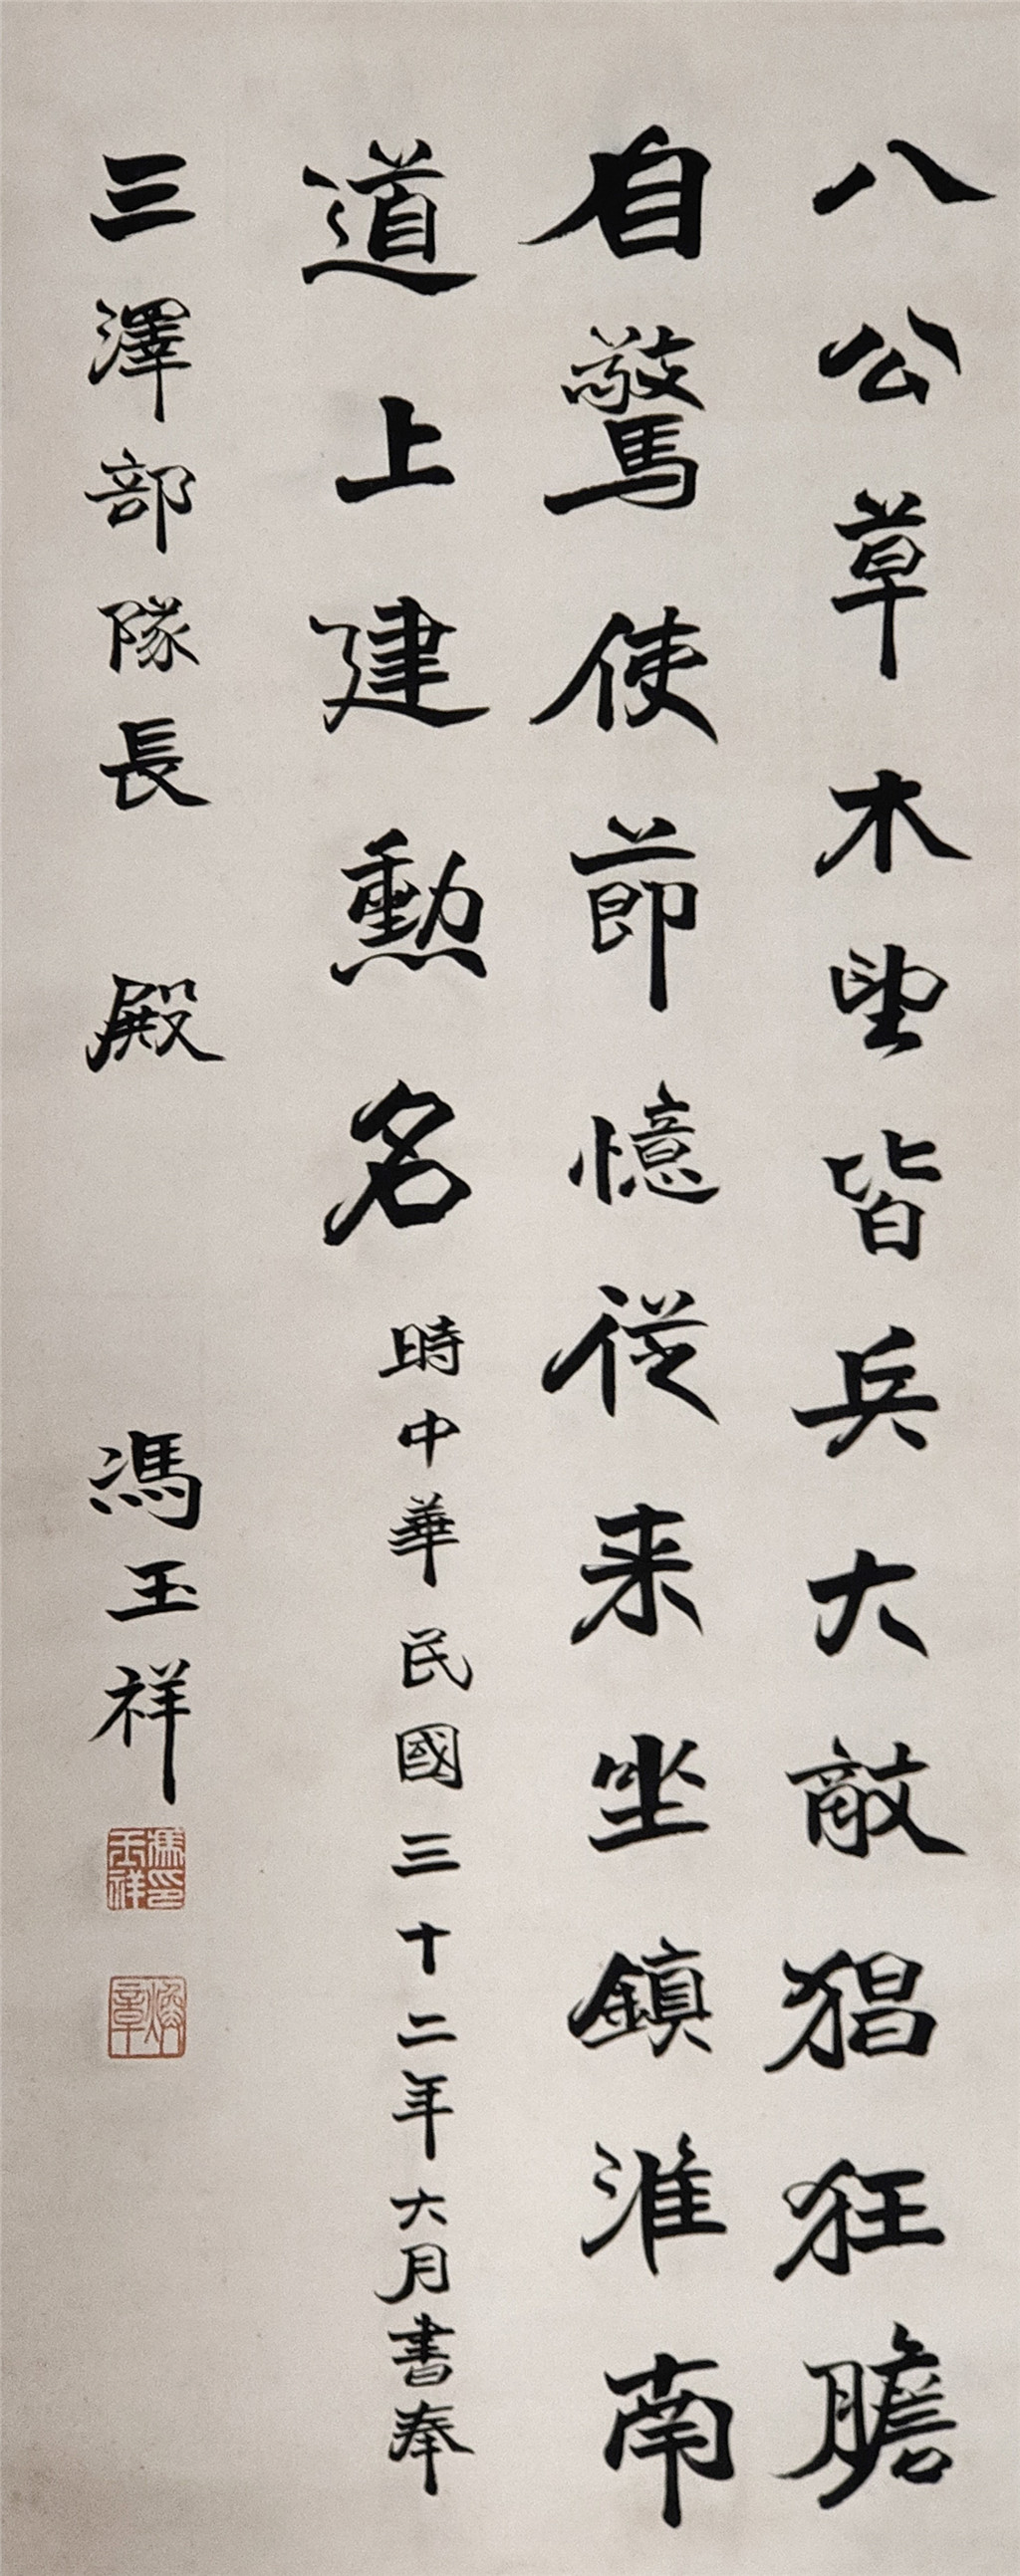 八公草木望皆兵大敵猖狂膽
自驚使節憶從来坐鎮淮南
道上建勳名時中華民國三十二年六月書奉
三澤部隊長 殿 馮玉祥
馮玉祥印
煥章